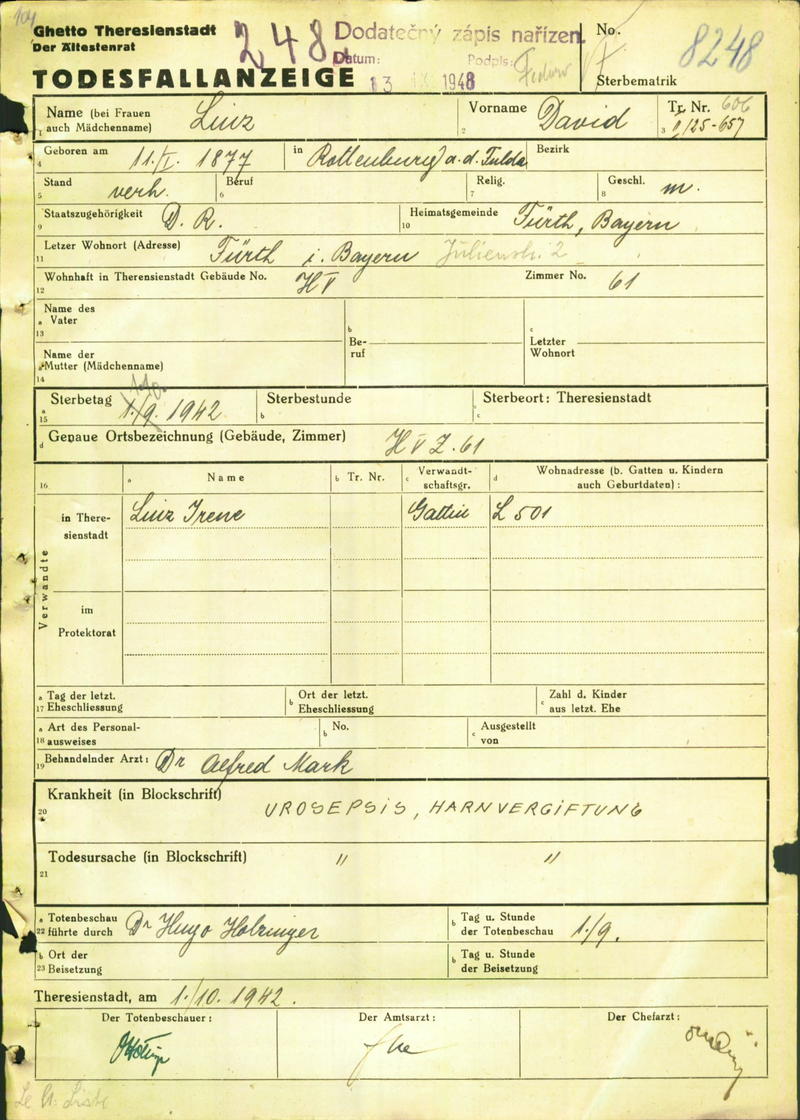 104
Ghetto Theresienstadt
Der Ältestenrat
TODESFALLANZEIGE
248
Dodatečný zápis nařízen
Datum: 13 IX 1948 Podpis:
No. 8248
Sterbematrik
Name (bei Frauen auch Mädchenname) Linz
1
Vorname David
2
Tr. Nr. 606
3 II/25-657
Geboren am 11./I. 1877
4
in Rottenburg a. d. Fulda
Bezirk
Stand verh.
5
Beruf
6
Relig.
7
Geschl. m.
8
Staatszugehörigkeit D. R.
9
Heimatsgemeinde Fürth, Bayern
10
Letzer Wohnort (Adresse) Fürth i. Bayern Julienstr. 2
11
Wohnhaft in Therensienstadt Gebäude No. H V
12
Zimmer No. 61
Name des
a Vater
13
b
Be-
ruf
c
Letzter
Wohnort
Name der
a Mutter (Mädchenname)
14
Sterbetag 1./9. 1942
a
15
1./10.
Sterbestunde
b
Sterbeort: Theresienstadt
c
Genaue Ortsbezeichnung (Gebäude, Zimmer) H V Z. 61
d
16
a Name
b Tr. Nr.
c Verwandt-
schaftsgr.
d Wohnadresse (b. Gatten u. Kindern
auch Geburtdaten) :
Verwandte
in There-
sienstadt
Linz Irene Gattin L 501
im
Protektorat
a Tag der letzt.
17 Eheschliessung
b Ort der letzt.
Eheschliessung
c Zahl d. Kinder
aus letzt. Ehe
a Art des Personal-
18 ausweises
b No.
c Ausgestellt
von
Behandelnder Arzt: Dr Alfred Mark
19
Krankheit (in Blockschrift)
20
UROSEPSIS, HARNVERGIFTUNG
Todesursache (in Blockschrift) " "
21
a Totenbeschau
22 führte durch Dr Hugo Holzinger
b Tag u. Stunde
der Totenbeschau 1./9.
b Ort der
23 Beisetzung
b Tag u. Stunde
der Beisetzung
Theresienstadt, am 1./10. 1942.
Der Totenbeschauer:
Der Amtsarzt:
Der Chefarzt: